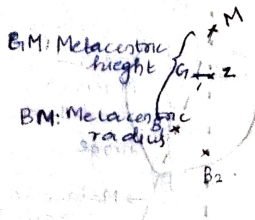 M
GM: Metacentric
hieght
G
Z
BM: Metacentric
radius
B
B2